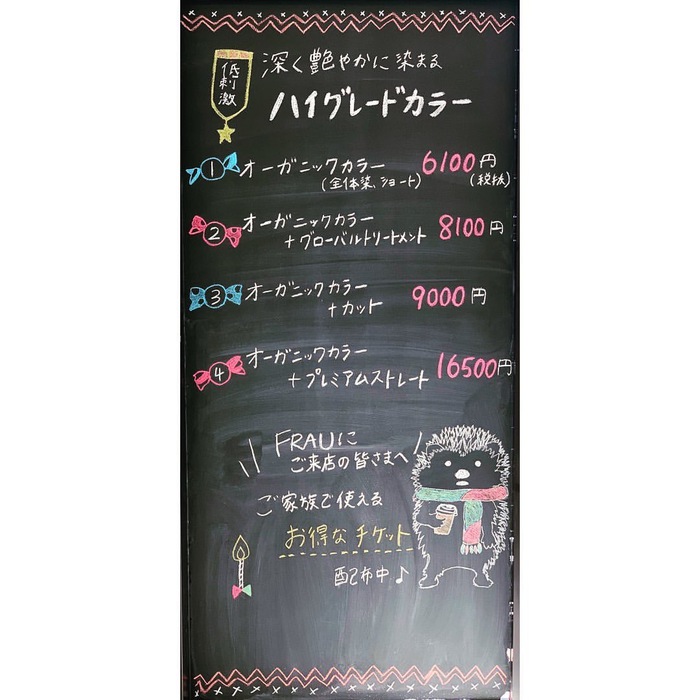 低刺激
深く艶やかに染まる
ハイグレードカラー
① オーガニックカラー 6100円
(全体染、ショート) (税抜)
② オーガニックカラー
+グローバルトリートメント 8100円
③ オーガニックカラー
+カット 9000円
④ オーガニックカラー
+プレミアムストレート 16500円
FRAUに
ご来店の皆さまへ
ご家族で使える
お得なチケット
配布中♪